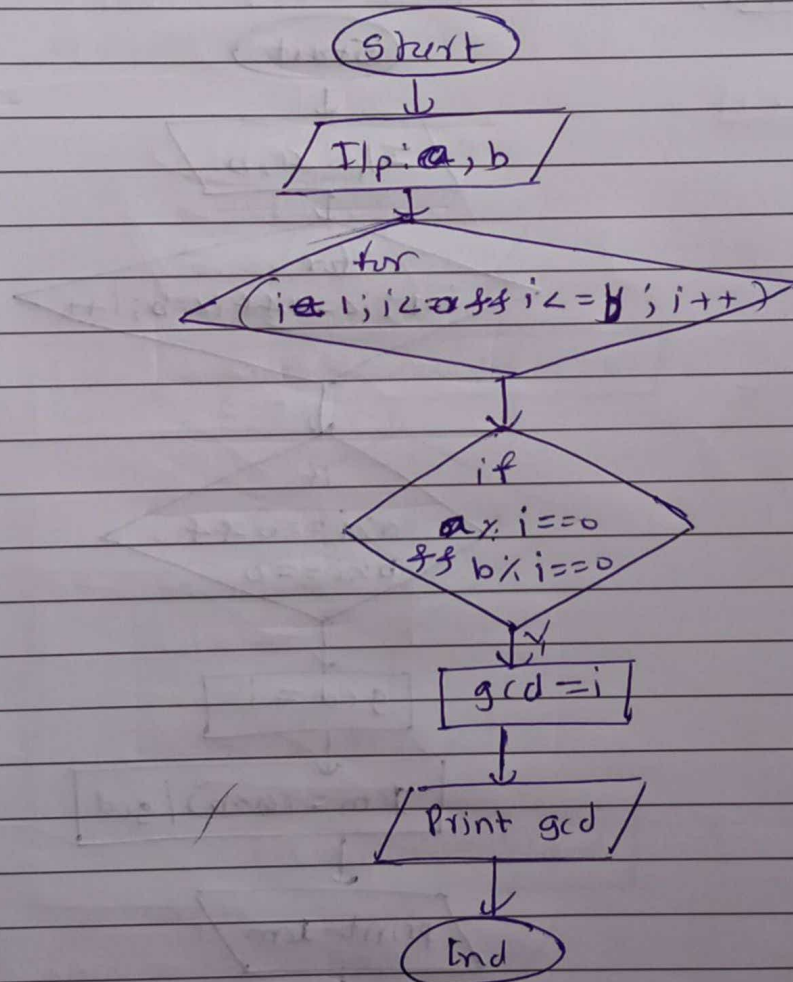 Start
I/p: a, b
for
(i = 1; i <= a && i <= b; i++)
if
a % i == 0
&& b % i == 0
Y
gcd = i
Print gcd
End